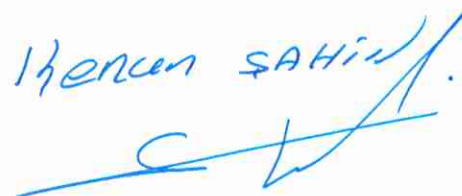 Kenan ŞAHİN